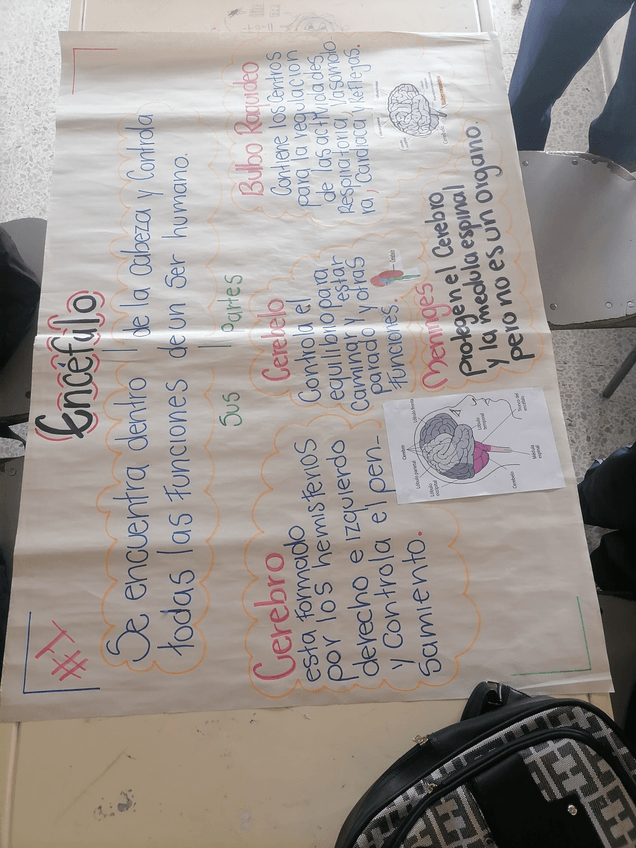 #1
Encéfalo
Se encuentra dentro de la cabeza y Controla
todas las funciones de un ser humano.
Sus partes
Cerebro
esta formado
por los hemisferios
derecho e izquierdo
y Controla el pen-
samiento.
Cerebelo
Controla el
equilibrio para
caminar y estar
parado y otras
funciones.
Bulbo Raquideo
Contiene los Centros
para la regulacion
de las actividades
Respiratoria, Vasomoto
ra, Cardiaca y Reflejas.
Meninges
protegen el Cerebro
y la medula espinal
pero no es un organo.
Cerebro
Lóbulo parietal
Lóbulo frontal
Lóbulo occipital
Lóbulo temporal
Cerebelo
Médula espinal
Tronco del encéfalo